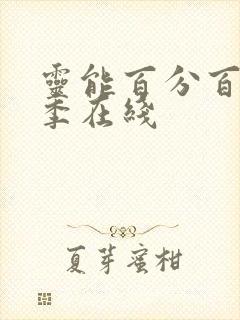 靈能百分百
季在綫
夏芽蜜柑